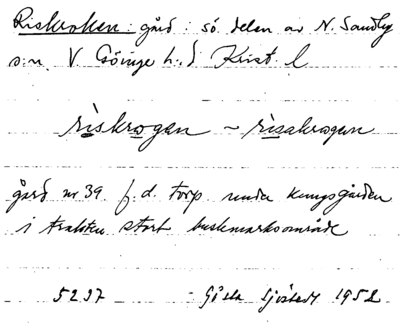 Riskroken: gård: sö delen av N. Sandby
s:n V Göinge h:d Krist. l
rìskrogan ~ rìsakrogan
gård nr 39 f.d. torp under kungsgården
i trakten stort buskmarksområde
5237 Gösta Sjöstedt 1952